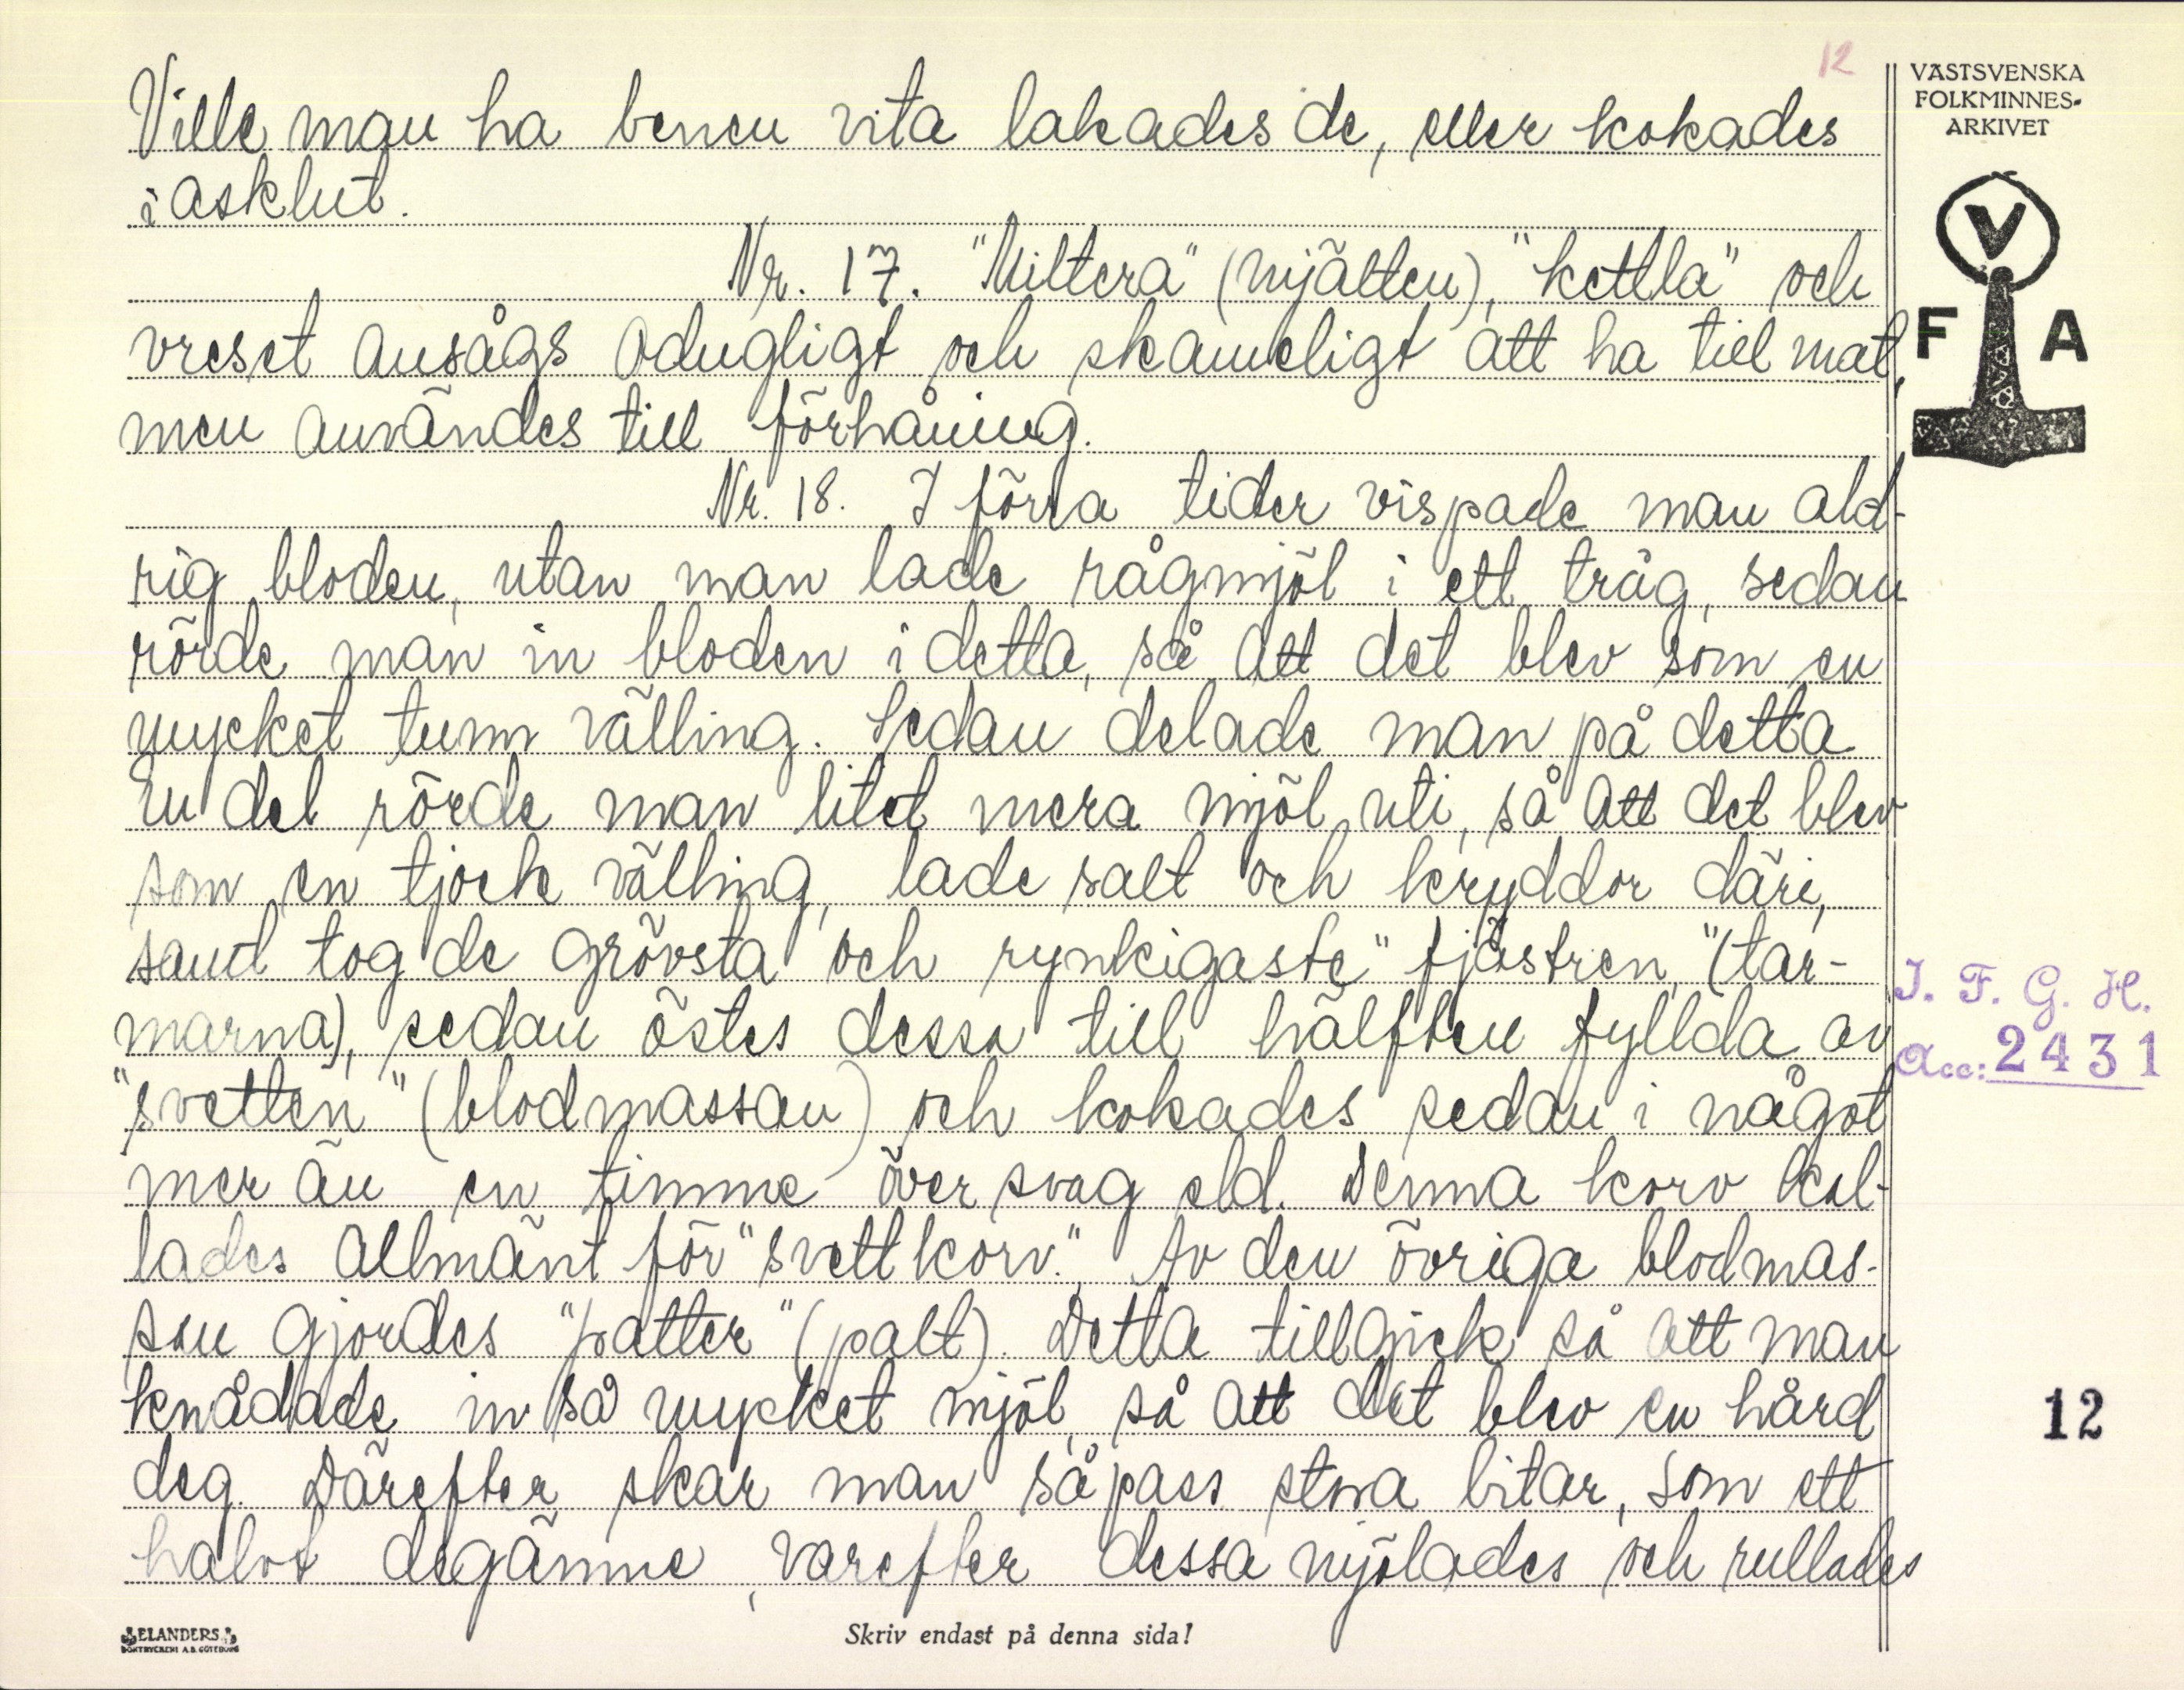 12
VÄSTSVENSKA
FOLKMINNES-
ARKIVET
V
F A
Ville man ha benen vita lakades de, eller kokades
i asklut.
Nr. 17. "Miltera" (mjälten), "kettla" och
vreset ansågs odugligt och skamligt att ha till mat,
men användes till förhåning.
Nr. 18. I förra tider vispade man ald-
rig bloden, utan man lade rågmjöl i ett tråg, sedan
rörde man in bloden i detta, så att det blev som en
mycket tunn välling. Sedan delade man på detta
En del rörde man litet mera mjöl uti, så att det blev
som en tjock välling, lade salt och kryddor däri,
samt tog de grövsta och rynkigaste "fjästren" (tar-
marna), sedan östes dessa till hälften fyllda av
"svetten" (blodmassan) och kokades sedan i något
mer än en timme över svag eld. Denna korv kal-
lades allmänt för "svettkorv". Av den övriga blodmas-
san gjordes "patter" (palt). Detta tillgick så att man
knådade in så mycket mjöl, så att det blev en hård
deg. Därefter skar man såpass stora bitar, som ett
halvt degämne, varefter dessa mjölades och rullades
I. F. G. H.
Acc: 2431
12
ELANDERS
BOKTRYCKERI A.B. GÖTEBORG
Skriv endast på denna sida!